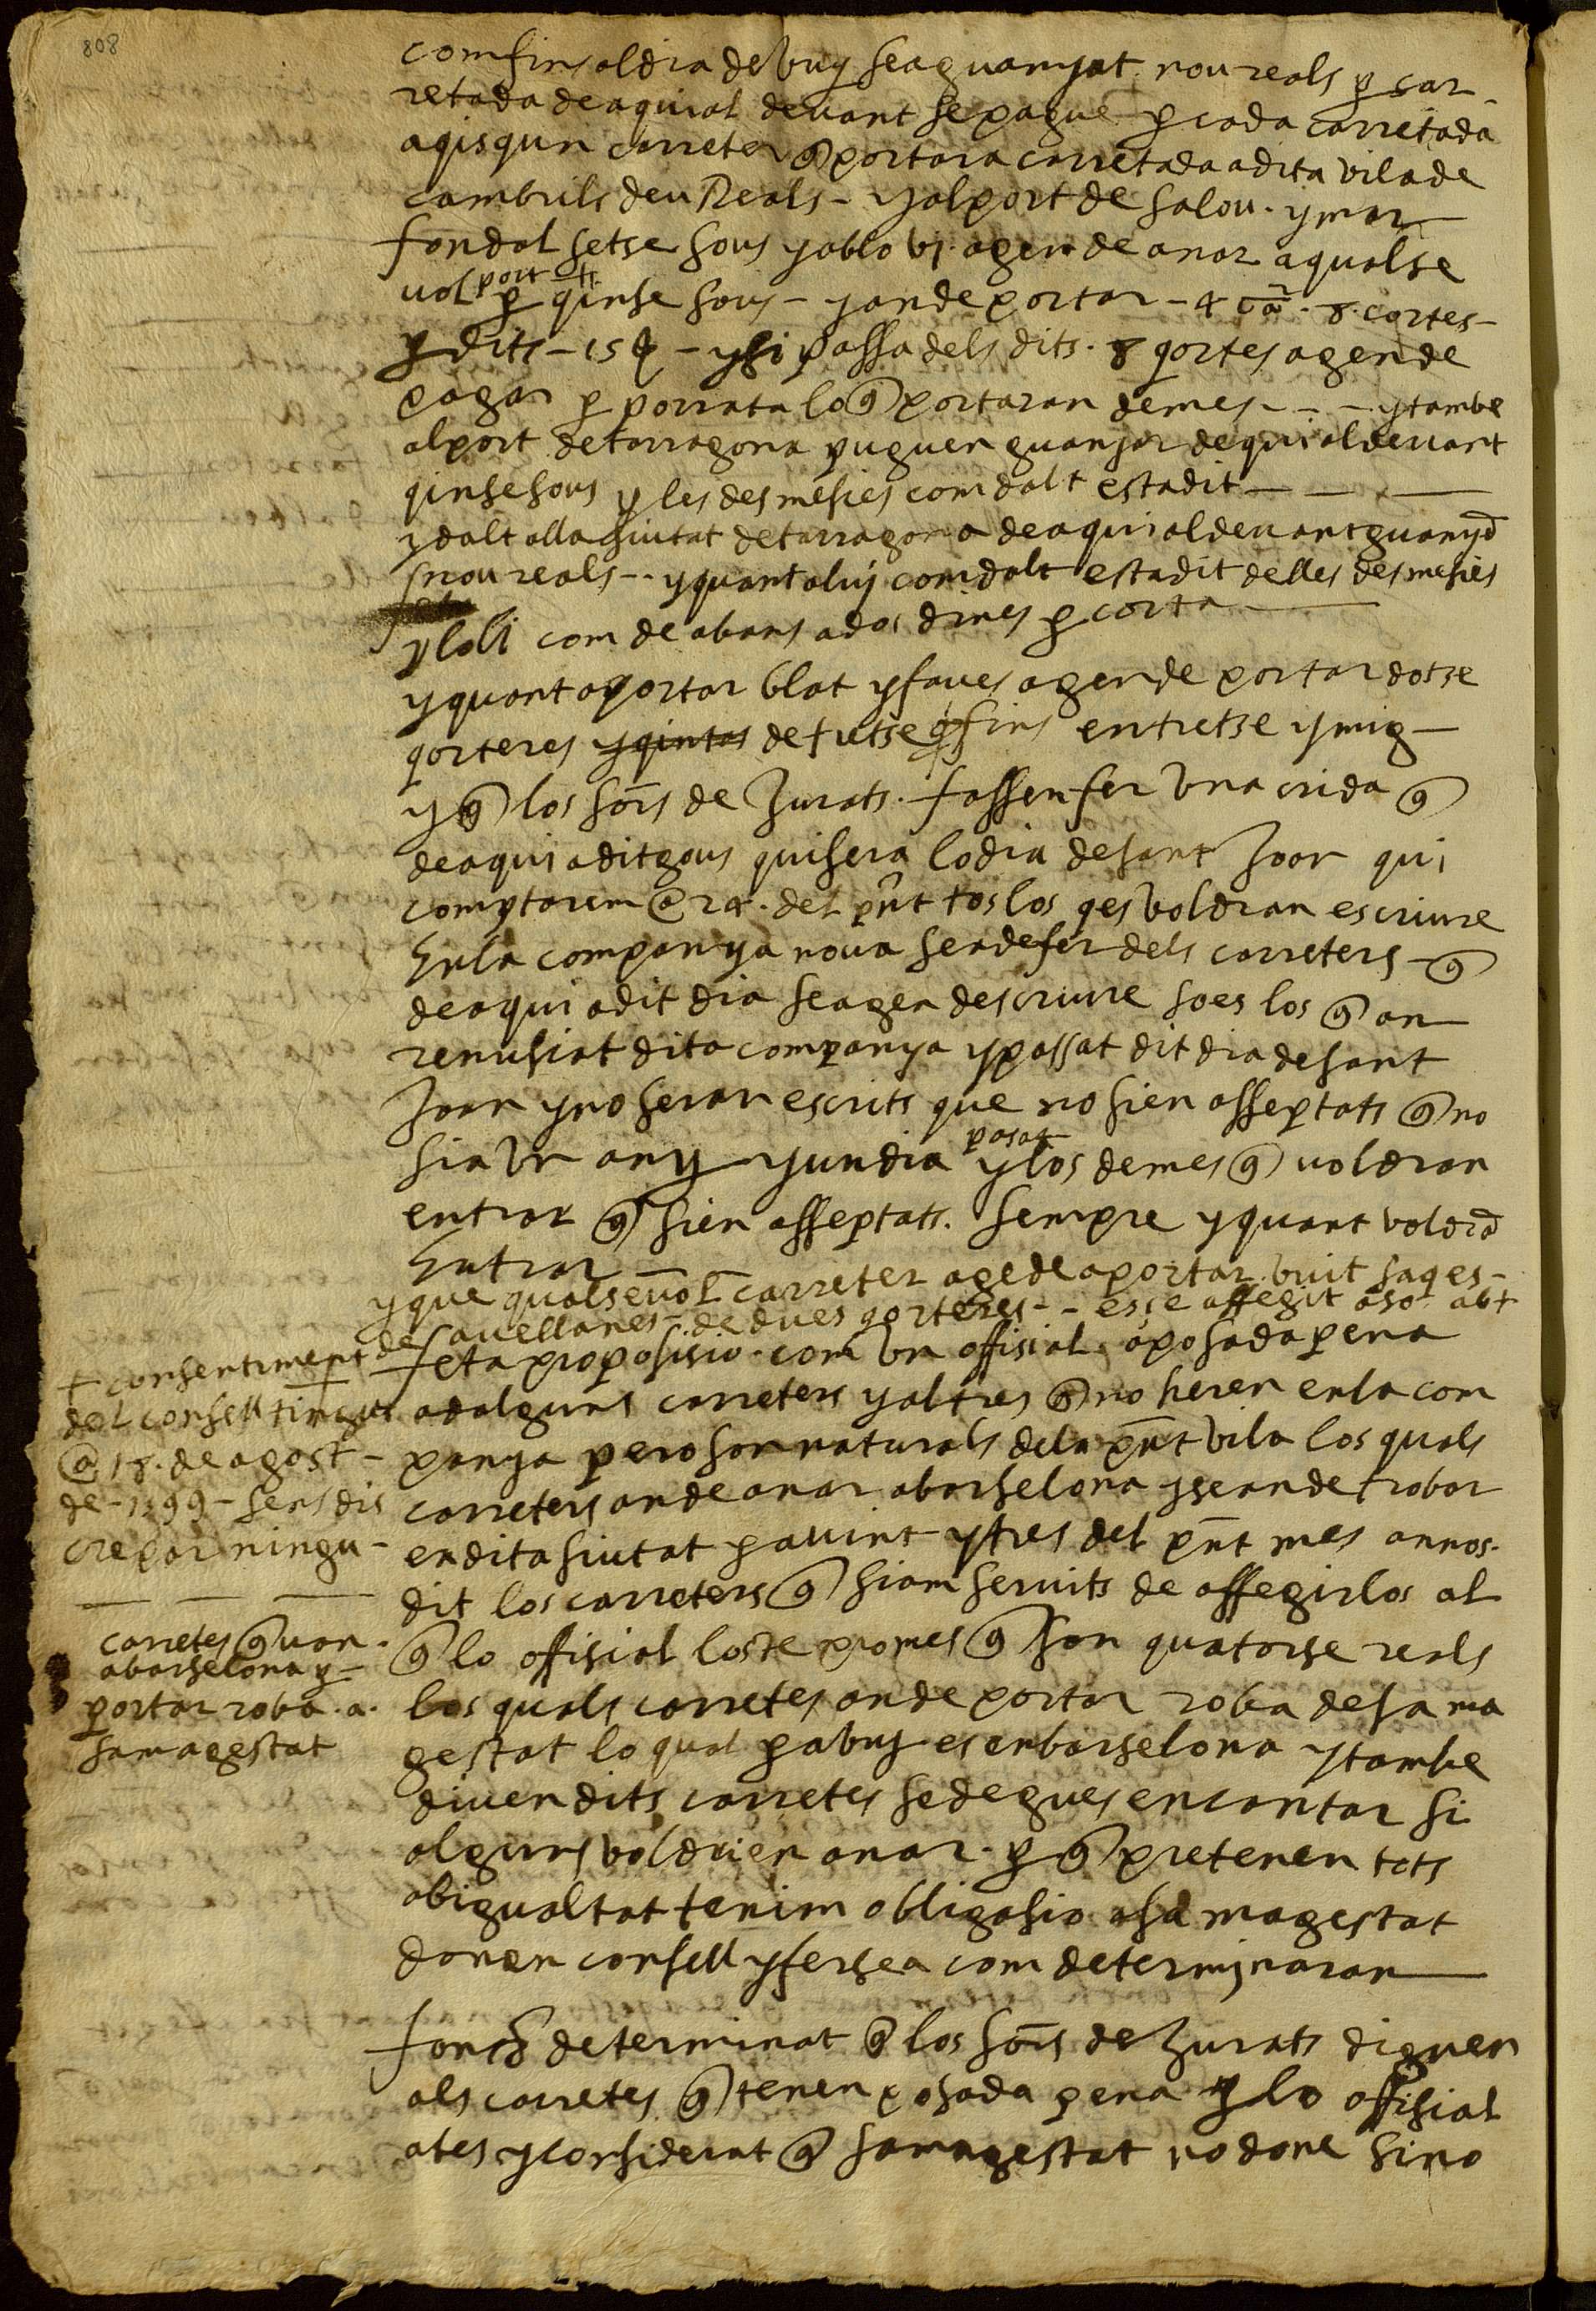 808
com fins al dia de vuy sea guanyat nou reals p car
retada de aqui al devant se pague p cada carretada
aqisqun carreter q̃ portara carretada a dita vila de
cambrils deu Reals - y al port de salou . y mar
fondal setse sous y ab lo vi . agen de anar a qualse
vol port p qinse sous - y an de portar - 4 . 8 . cortes -
p dits - 15 - y si passa dels dits . 8 qortes agen de
pagar p porrata lo q̃ portaran de mes - - - y tambe
al port de tarragona puguen guanyar de qui al devant
qinse sous y les desmesies com dalt esta dit -
y dalt alla siutat de tarragona de aqui al devant guanyē
nou reals - . y quant al vi com dalt esta dit delles desmesies
y loli com de abans a dos dines p corta
y quant a portar blat y faves agen de portar dotse
qorteres y qintas de tretse fins en tretse y mig -
y q̃ los sõrs de Jurats . fassen fer vna crida q̃
de aqui a ditgous qui sera lo dia de sant Joan qui
comptarem @ 24 . del pñt tos los qes voldran escriure
En la companya nova sea de fer dels carreters - q̃
de aqui a dit dia se agen descriure so es los q̃ an
renusiat dita companya y passat dit dia de sant
Joan y no seran escrits que no sien asseptats q̃ no
sia vn any y un dia posat y los demes q̃ voldran
entrar q̃ sien asseptats . sempre y quant voldrā
Entrar -
y que qualsevol carreter age de aportar . vuit saqes -
de avellanes - de dues qorteres - - es se affegit aso abt
+ consentiment
del consell tingut
@ 18 . de agost -
de - 1599 - sens dis
crepar ningu -
feta proposisio . com vn offisial . a posada pena
ad alguns carreters y altres q̃ no heren en la com
panya pero son naturals de la pñt vila los quals
carreters an de anar a barselona y se an de trobar
en dita siutat p a vint y tres del pñt mes an nos .
dit los carreters q̃ siam servits de affegirlos al
carretes q̃ van .
a barselona p
portar roba . a .
sa magestat
q̃ lo offisial los te promes q̃ son quatorse reals
los quals carretes an de portar roba de sa ma
gestat lo qual p a vuy es en barselona y tambe
diuen dits carretes se degues encantar si
alguns voldrien anar . p q̃ pretenen tots
ab igualtat tenim obligasio a sa magestat
donen consell y fersea com determinaran
fonch determinat q̃ los sõrs de Jurats diguen
als carretes q̃ tenen posada pena p lo offisial
ates y considerat q̃ sa magestat no done sino